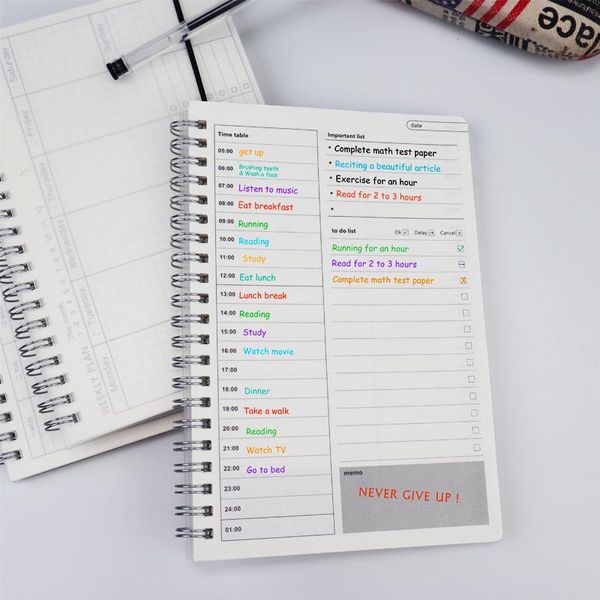 Saturday
Friday
Thursday
WEEKLY PLAN
This month
Tuesday
Monday
ace
date
Time table
05:00 get up
06:00 Brushing teeth
& Wash a face
07:00 Listen to music
08:00 Eat breakfast
09:00 Running
10:00 Reading
11:00 Study
12:00 Eat lunch
13:00 Lunch break
14:00 Reading
15:00 Study
16:00 Watch movie
17:00
18:00 Dinner
19:00 Take a walk
20:00 Reading
21:00 Watch TV
22:00 Go to bed
23:00
24:00
01:00
Important list
• Complete math test paper
• Reciting a beautiful article
• Exercise for an hour
• Read for 2 to 3 hours
•
to do list
Ok Delay Cancel
Running for an hour
Read for 2 to 3 hours
Complete math test paper
memo
NEVER GIVE UP !